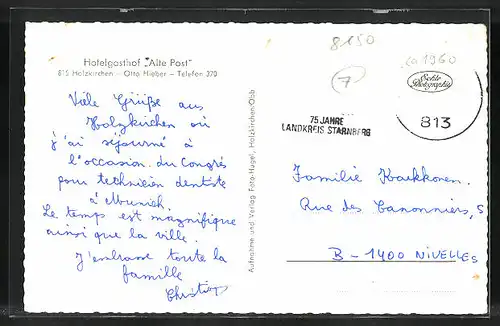 Hotelgasthof "Alte Post"
815 Holzkirchen - Otto Hieber - Telefon 270
Viele Grüße aus
Holzkirchen où
j'ai séjourné à
l'occasion du Congrès
pour technicien dentiste
à Munich.
Le temps est magnifique
ainsi que la ville.
J'embrasse toute la
famille
Aufnahme und Verlag: Foto-Hägel, Holzkirchen/Obb
8150
7
ca 1960
Echte
Photographie
75 JAHRE
LANDKREIS STARNBERG
813
Familie Kackkonen.
Rue des Canonniers, 5
B - 1400 NIVELLES